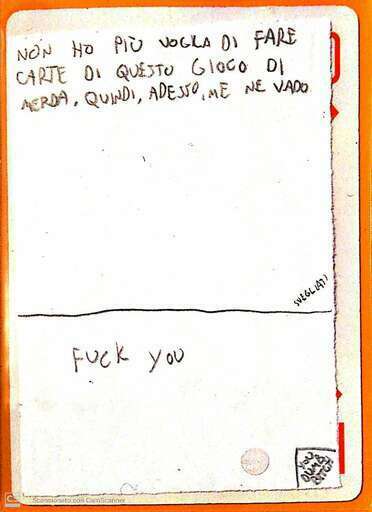 NON HO PIÙ VOGLA DI FARE
CARTE DI QUESTO GIOCO DI
MERDA. QUINDI, ADESSO, ME NE VADO
SVEGLIATI
FUCK YOU
YOU
DUMB
BITCH
CS
Scansionato con CamScanner